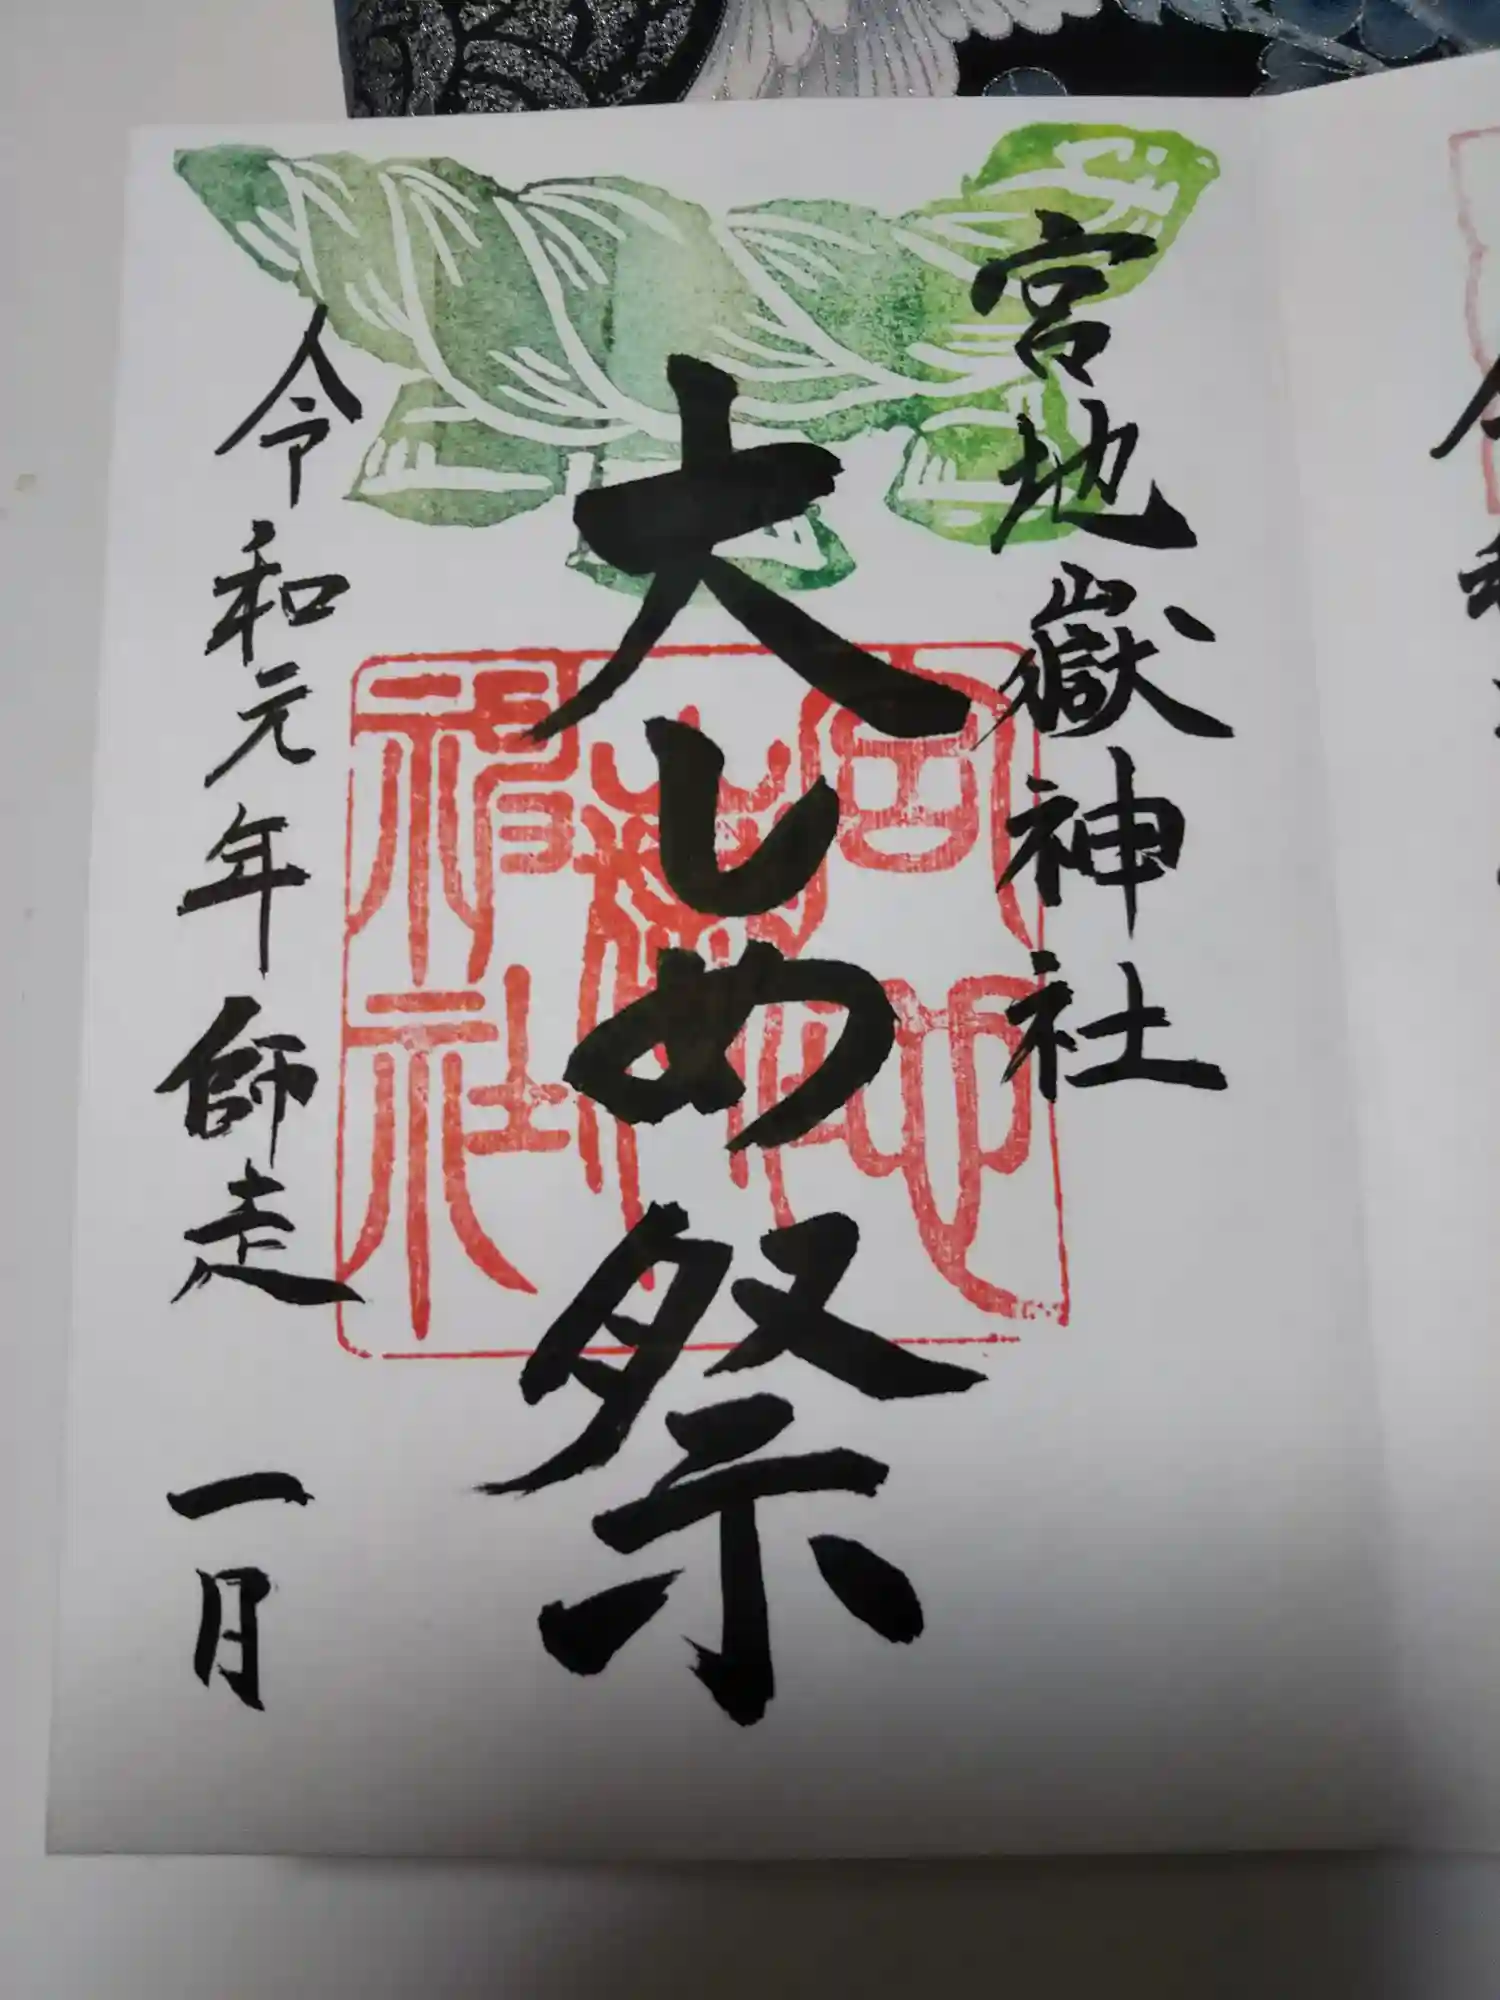 宮地嶽神社
大しめ祭
令和元年師走 一日
宮地嶽神社